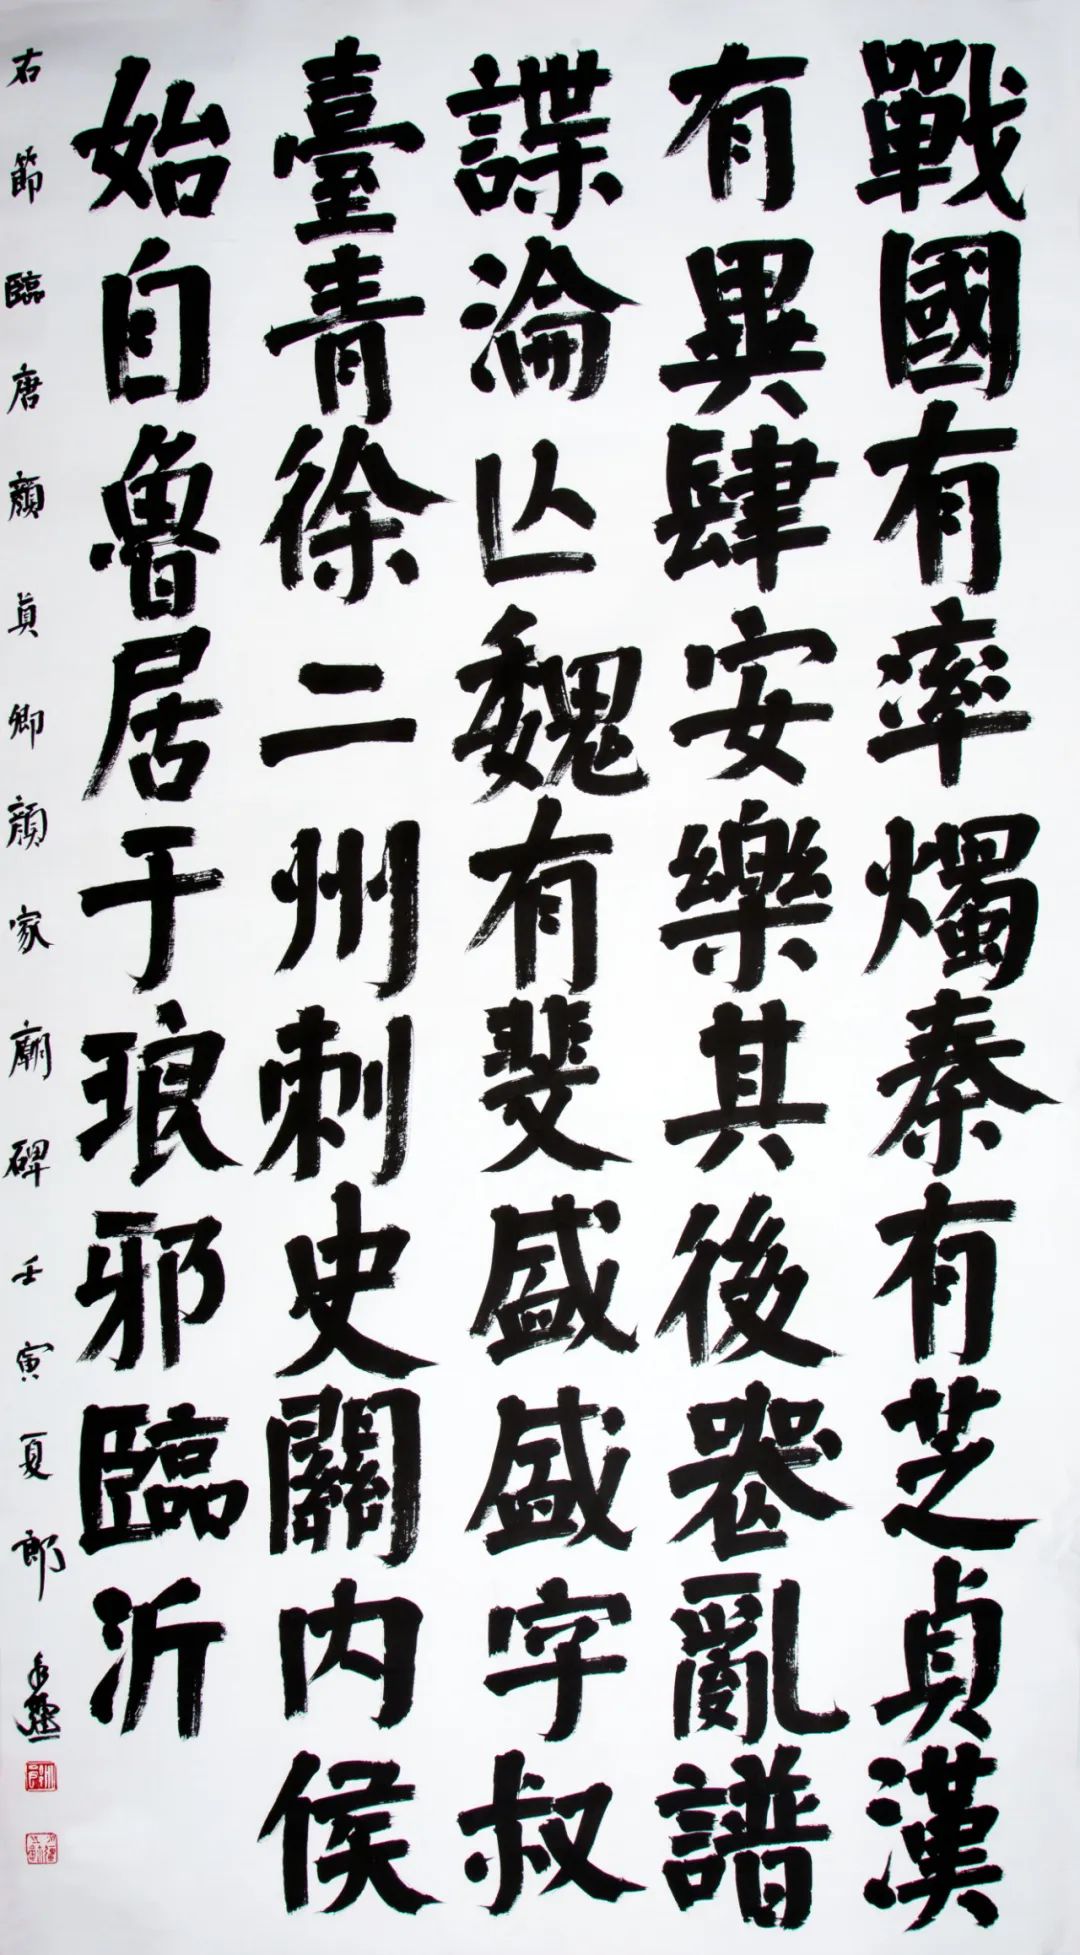 戰國有率燭秦有芝貞漢
有異肆安樂其後喪亂譜
諜淪亾魏有斐盛盛字叔
臺青徐二州刺史關內侯
始自魯居于琅邪臨沂
右節臨唐顏真卿顏家廟碑壬寅夏郎